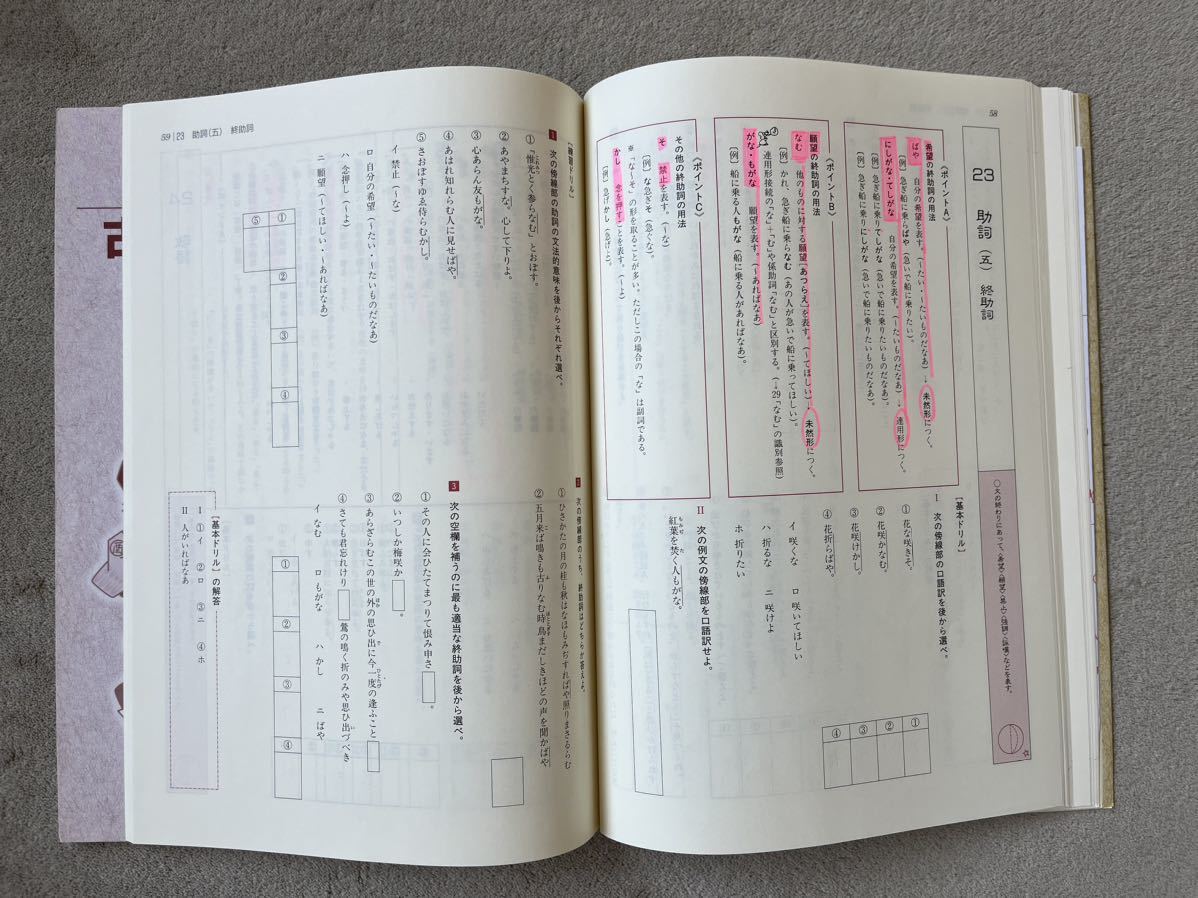 58
23 助詞(五) 終助詞
○文の終わりにあって、〈希望〉〈願望〉〈禁止〉〈強調〉〈詠嘆〉などを表す。
〈ポイントA〉
希望の終助詞の用法
ばや 自分の希望を表す。(〜たい・〜たいものだなあ) → 未然形につく。
〔例〕急ぎ船に乗らばや(急いで船に乗りたい)。
にしがな・てしがな 自分の希望を表す。(〜たいものだなあ) → 連用形につく。
〔例〕急ぎ船に乗りてしがな(急いで船に乗りたいものだなあ)。
〔例〕急ぎ船に乗りにしがな(急いで船に乗りたいものだなあ)。
〈ポイントB〉
願望の終助詞の用法
なむ 他のものに対する願望[あつらえ]を表す。(〜てほしい) → 未然形につく。
〔例〕かれ、急ぎ船に乗らなむ(あの人が急いで船に乗ってほしい)。
連用形接続の「な」+「む」や係助詞「なむ」と区別する。(→29「なむ」の識別参照)
がな・もがな 願望を表す。(〜あればなあ)
〔例〕船に乗る人もがな(船に乗る人があればなあ)。
〈ポイントC〉
その他の終助詞の用法
そ 禁止を表す。(〜な)
〔例〕な急ぎそ(急ぐな)。
※「な〜そ」の形を取ることが多い。ただしこの場合の「な」は副詞である。
かし 念を押すことを表す。(〜よ)
〔例〕急げかし(急げよ)。
[基本ドリル]
I 次の傍線部の口語訳を後から選べ。
① 花な咲きそ。
② 花咲かなむ。
③ 花咲けかし。
④ 花折らばや。
イ 咲くな ロ 咲いてほしい
ハ 折るな ニ 咲けよ
ホ 折りたい
①
②
③
④
II 次の例文の傍線部を口語訳せよ。
紅葉を焚く人もがな。
もみぢ た
59 | 23 助詞(五) 終助詞
[練習ドリル]
1 次の傍線部の助詞の文法的意味を後からそれぞれ選べ。
① 「惟光とく参らなむ」とおぼす。
これみつ
② あやまちすな。心して下りよ。
③ 心あらん友もがな。
④ あはれ知れらむ人に見せばや。
⑤ さおぼすゆゑ侍らむかし。
イ 禁止(〜な)
ロ 自分の希望(〜たい・〜たいものだなあ)
ハ 念押し(〜よ)
ニ 願望(〜てほしい・〜あればなあ)
①
②
③
④
⑤
2 次の傍線部のうち、終助詞はどちらか答えよ。
① ひさかたの月の桂も秋はなほもみぢすればや照りまさるらむ
② 五月来ば鳴きも古りなむ時鳥まだしきほどの声を聞かばや
3 次の空欄を補うのに最も適当な終助詞を後から選べ。
① その人に会ひたてまつりて恨み申さ。
② いつしか梅咲か。
③ あらざらむこの世の外の思ひ出に今一度の逢ふこと
④ さても君忘れけり 鶯の鳴く折のみや思ひ出づべき
イ なむ ロ もがな ハ かし ニ ばや
①
②
③
④
[基本ドリル]の解答
I ①イ ②ロ ③ニ ④ホ
II 人がいればなあ